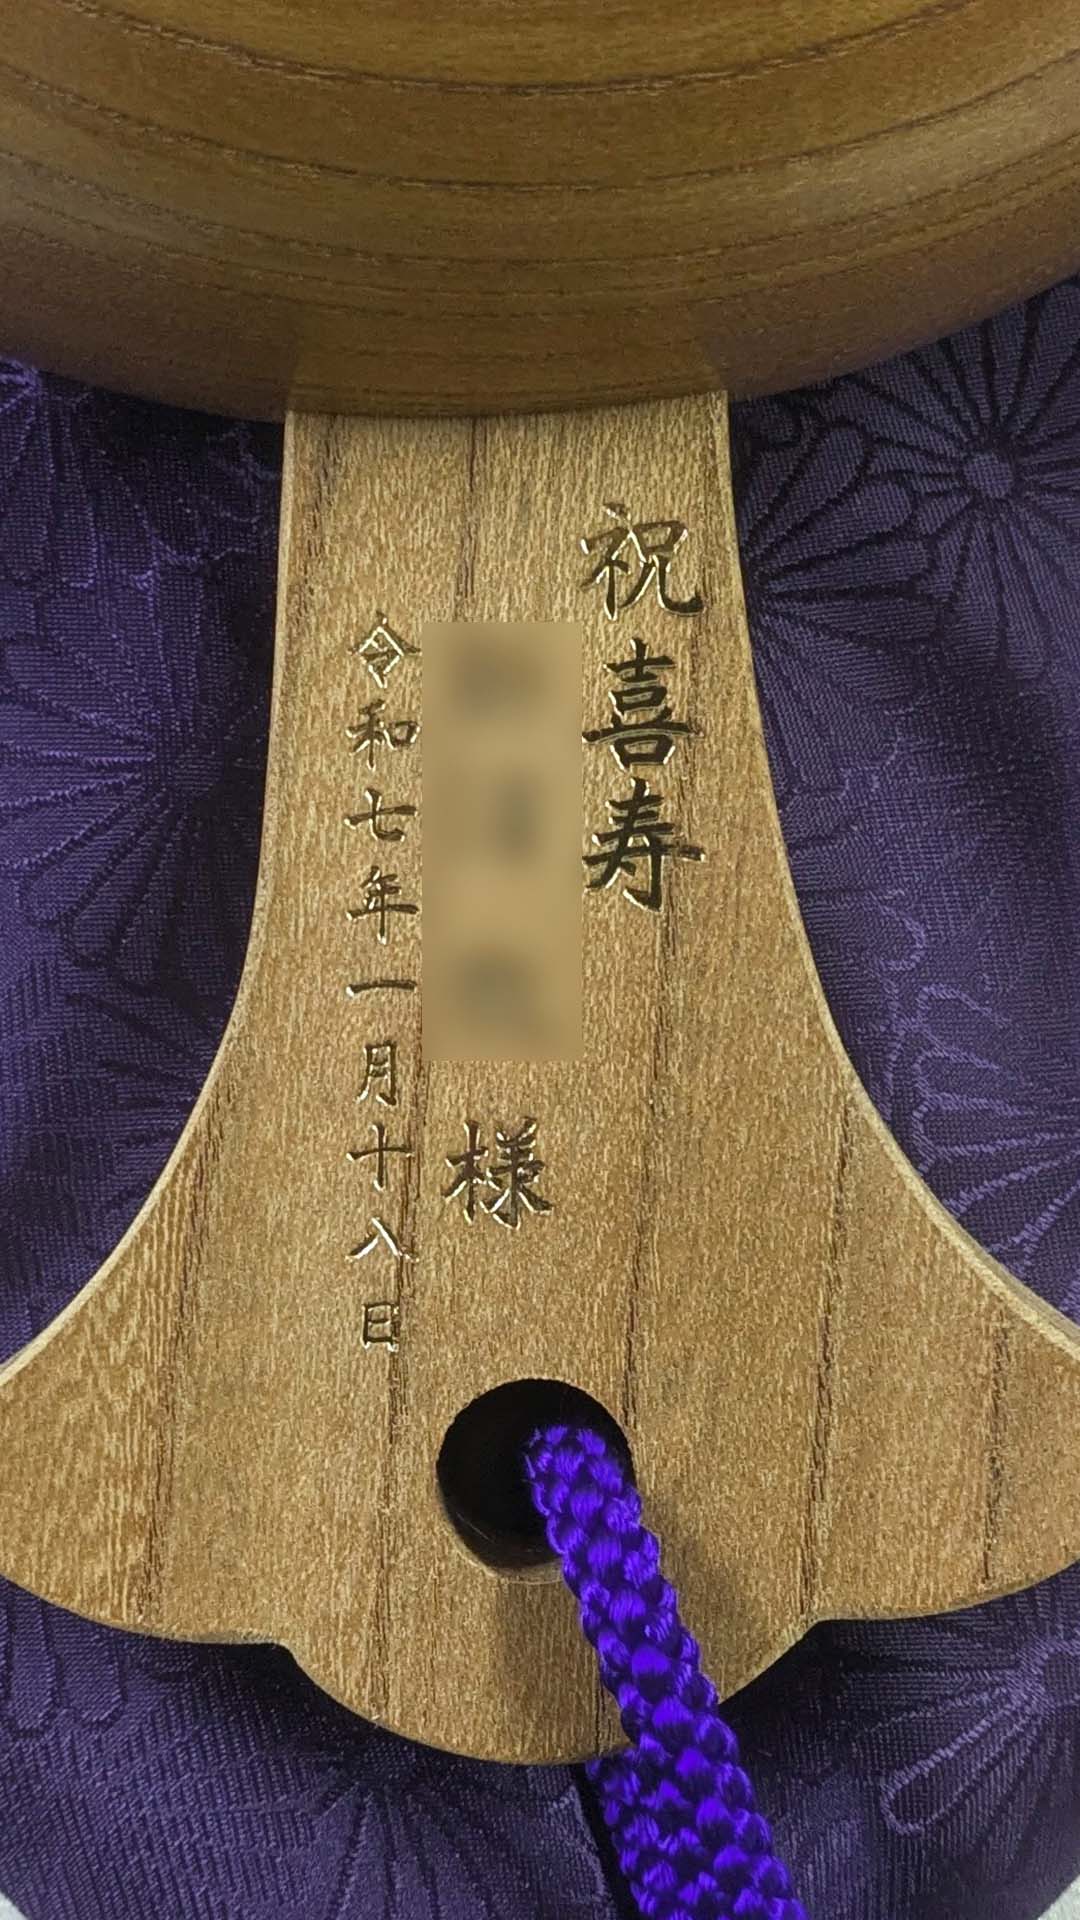 祝喜寿
様
令和七年一月十八日